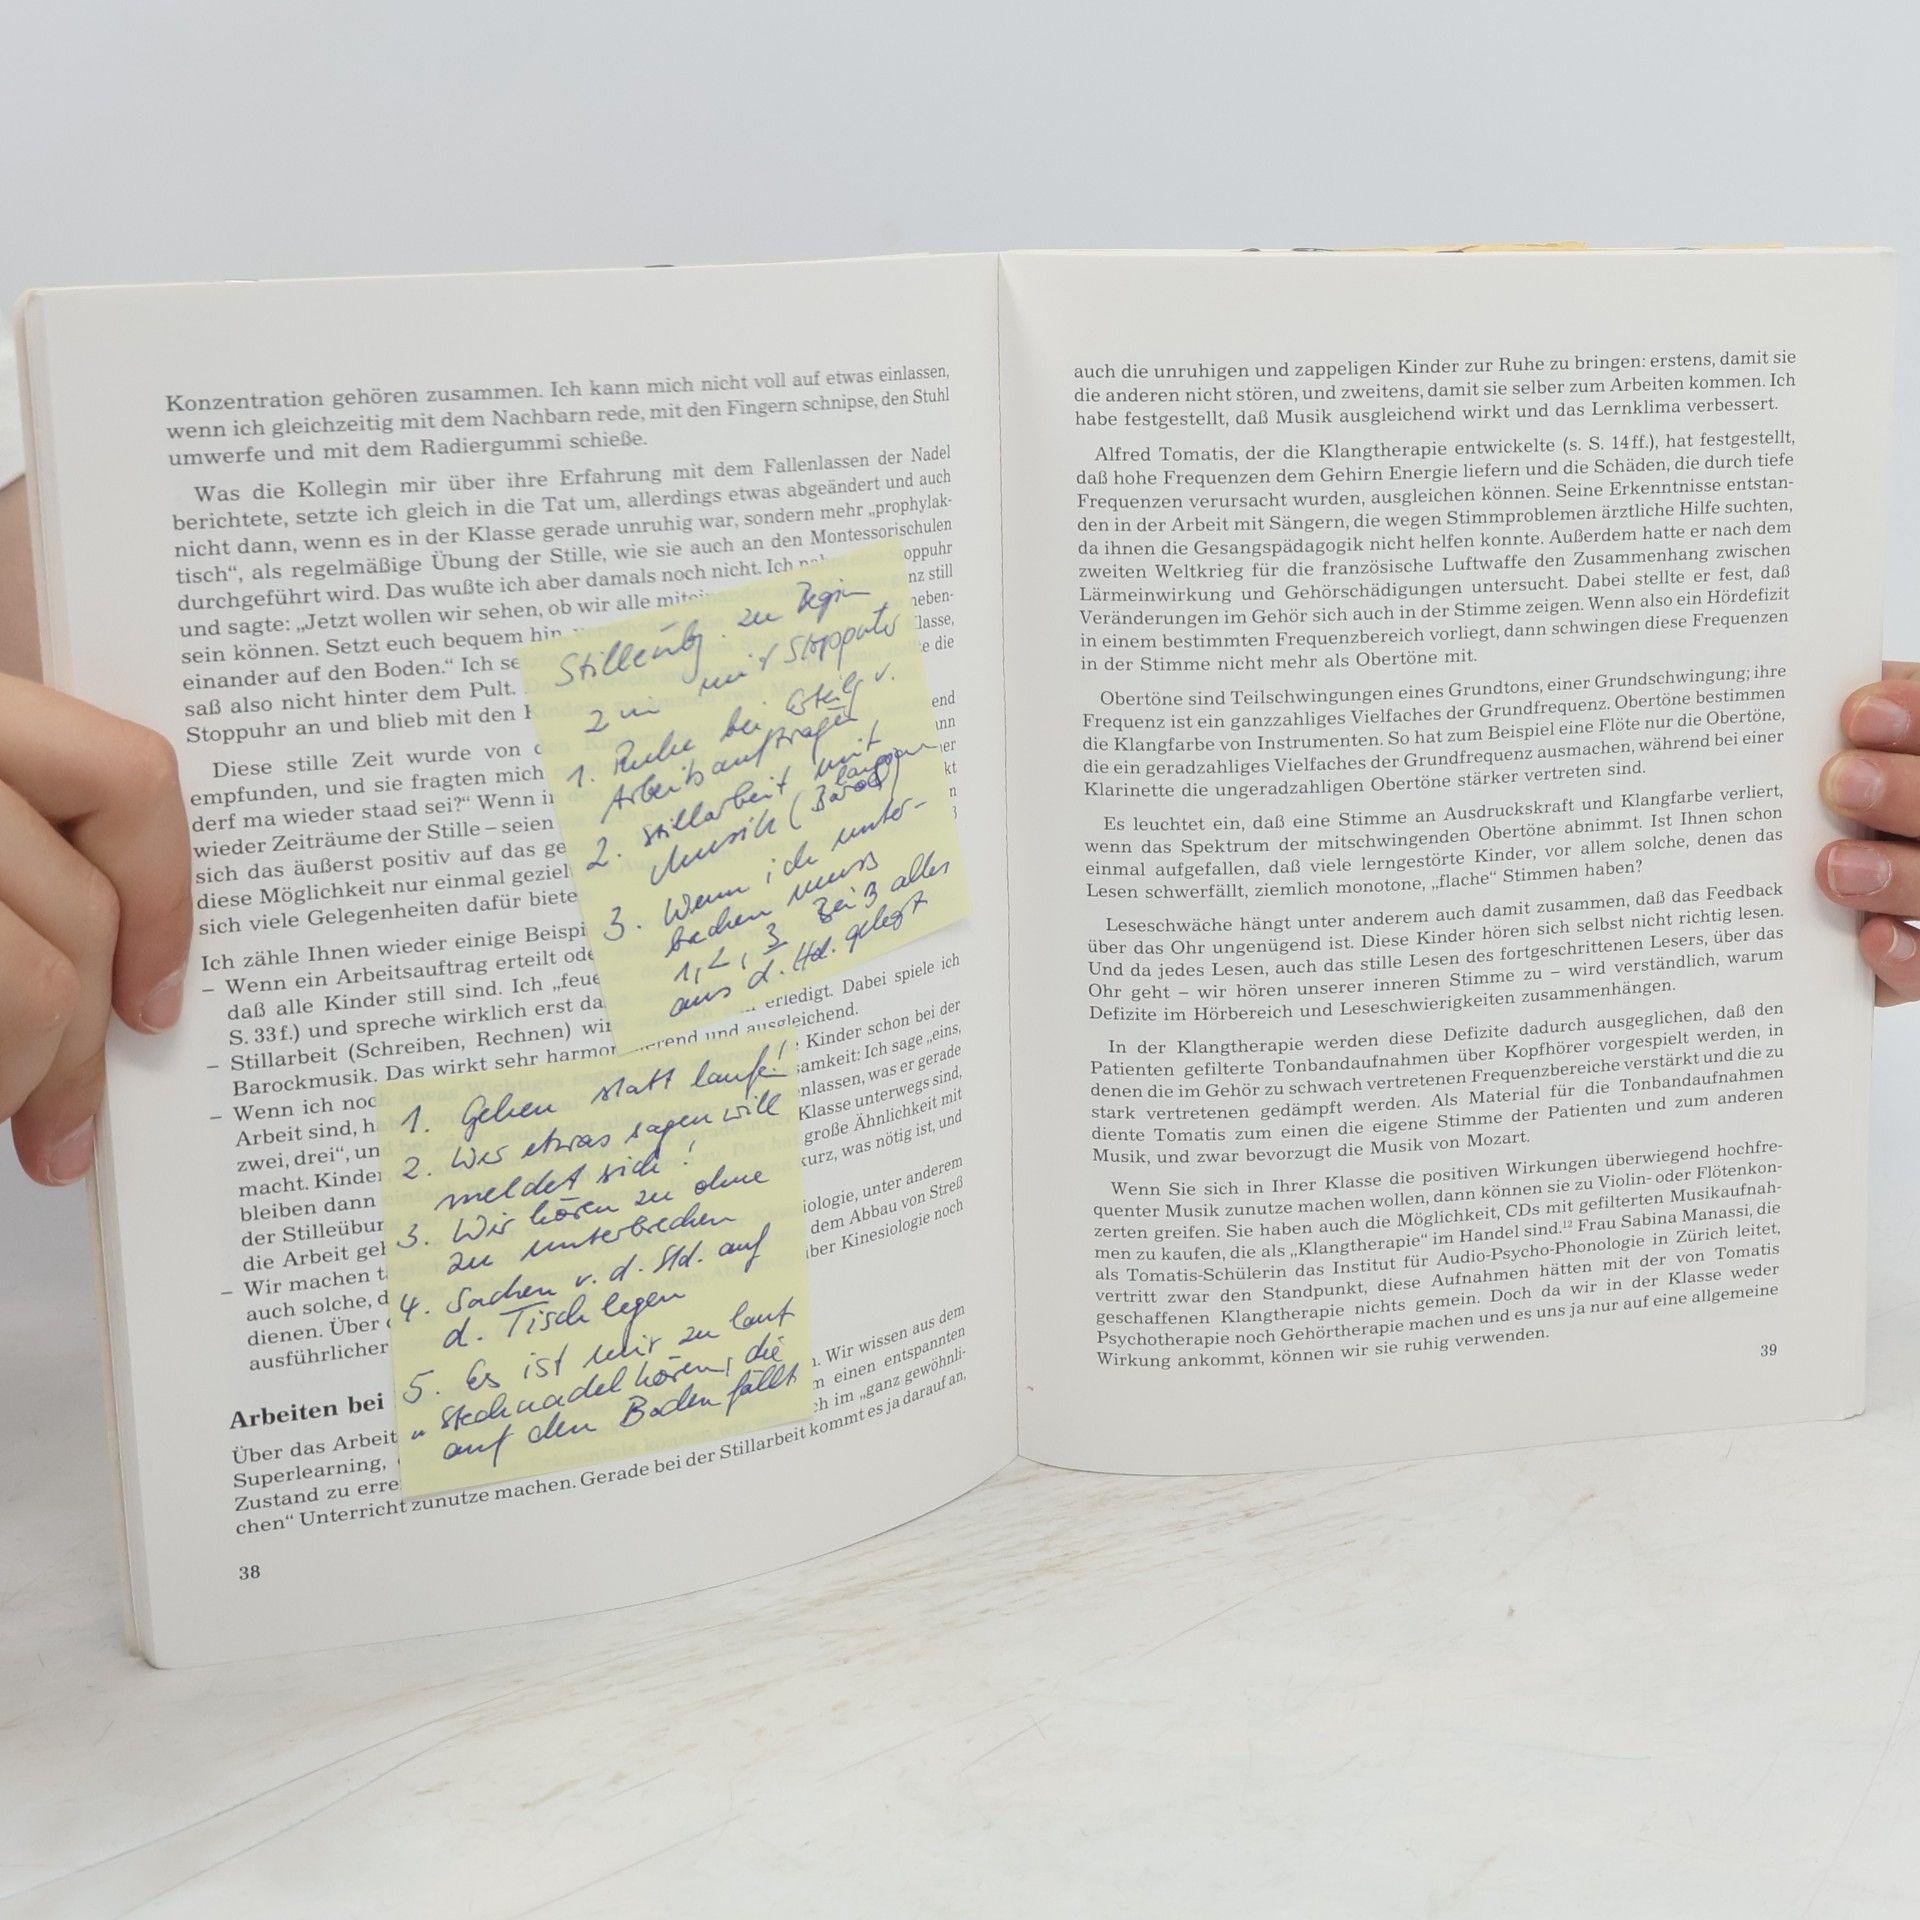 Konzentration gehören zusammen. Ich kann mich nicht voll auf etwas einlassen,
wenn ich gleichzeitig mit dem Nachbarn rede, mit den Fingern schnipse, den Stuhl
umwerfe und mit dem Radiergummi schieße.
Was die Kollegin mir über ihre Erfahrung mit dem Fallenlassen der Nadel
berichtete, setzte ich gleich in die Tat um, allerdings etwas abgeändert und auch
nicht dann, wenn es in der Klasse gerade unruhig war, sondern mehr „prophylak-
tisch“, als regelmäßige Übung der Stille, wie sie auch an den Montessorischulen
durchgeführt wird. Das wußte ich aber damals noch nicht. Ich oppuhr
und sagte: „Jetzt wollen wir sehen, ob wir alle nz still
sein können. Setzt euch bequem hin neben-
einander auf den Boden.“ Ich se lasse,
saß also nicht hinter dem Pult. e die
Stoppuhr an und blieb mit den
Diese stille Zeit wurde von end
empfunden, und sie fragten mich nn
derf ma wieder staad sei?“ Wenn er
wieder Zeiträume der Stille – seien kt
sich das äußerst positiv auf das ge
diese Möglichkeit nur einmal geziel
sich viele Gelegenheiten dafür biete
Ich zähle Ihnen wieder einige Beispi
– Wenn ein Arbeitsauftrag erteilt ode
daß alle Kinder still sind. Ich „feue
S. 33f.) und spreche wirklich erst da
– Stillarbeit (Schreiben, Rechnen) wir erledigt. Dabei spiele ich
Barockmusik. Das wirkt sehr harmo erend und ausgleichend.
– Wenn ich noc Kinder schon bei der
Arbeit sind, h samkeit: Ich sage „eins,
zwei, drei“, un nlassen, was er gerade
macht. Kinder Klasse unterwegs sind,
bleiben dann große Ähnlichkeit mit
der Stilleübur kurz, was nötig ist, und
die Arbeit geh
– Wir machen t iologie, unter anderem
auch solche, d dem Abbau von Streß
dienen. Über ber Kinesiologie noch
ausführlicher
Arbeiten bei
Über das Arbeit . Wir wissen aus dem
Superlearning, m einen entspannten
Zustand zu erre ch im „ganz gewöhnli-
chen“ Unterricht zunutze machen. Gerade bei der Stillarbeit kommt es ja darauf an,
38
Stilleübg. zu Beginn
2 m mit Stoppuhr
1. Ruhe bei Erteilg v.
Arbeitsaufträgen
2. Stillarbeit mit
langsam
Musik (Barock)
3. Wenn ich unter-
brechen muss
1, 2, 3 Bei 3 alles
aus d. Hd. gelegt
1. Gehen statt laufen!
2. Wer etwas sagen will
meldet sich!
3. Wir hören zu ohne
zu unterbrechen
4. Sachen v. d. Std. auf
d. Tisch legen
5. Es ist mir zu laut
„Stecknadel hören, die
auf den Boden fällt
auch die unruhigen und zappeligen Kinder zur Ruhe zu bringen: erstens, damit sie
die anderen nicht stören, und zweitens, damit sie selber zum Arbeiten kommen. Ich
habe festgestellt, daß Musik ausgleichend wirkt und das Lernklima verbessert.
Alfred Tomatis, der die Klangtherapie entwickelte (s. S. 14ff.), hat festgestellt,
daß hohe Frequenzen dem Gehirn Energie liefern und die Schäden, die durch tiefe
Frequenzen verursacht wurden, ausgleichen können. Seine Erkenntnisse entstan-
den in der Arbeit mit Sängern, die wegen Stimmproblemen ärztliche Hilfe suchten,
da ihnen die Gesangspädagogik nicht helfen konnte. Außerdem hatte er nach dem
zweiten Weltkrieg für die französische Luftwaffe den Zusammenhang zwischen
Lärmeinwirkung und Gehörschädigungen untersucht. Dabei stellte er fest, daß
Veränderungen im Gehör sich auch in der Stimme zeigen. Wenn also ein Hördefizit
in einem bestimmten Frequenzbereich vorliegt, dann schwingen diese Frequenzen
in der Stimme nicht mehr als Obertöne mit.
Obertöne sind Teilschwingungen eines Grundtons, einer Grundschwingung; ihre
Frequenz ist ein ganzzahliges Vielfaches der Grundfrequenz. Obertöne bestimmen
die Klangfarbe von Instrumenten. So hat zum Beispiel eine Flöte nur die Obertöne,
die ein geradzahliges Vielfaches der Grundfrequenz ausmachen, während bei einer
Klarinette die ungeradzahligen Obertöne stärker vertreten sind.
Es leuchtet ein, daß eine Stimme an Ausdruckskraft und Klangfarbe verliert,
wenn das Spektrum der mitschwingenden Obertöne abnimmt. Ist Ihnen schon
einmal aufgefallen, daß viele lerngestörte Kinder, vor allem solche, denen das
Lesen schwerfällt, ziemlich monotone, „flache“ Stimmen haben?
Leseschwäche hängt unter anderem auch damit zusammen, daß das Feedback
über das Ohr ungenügend ist. Diese Kinder hören sich selbst nicht richtig lesen.
Und da jedes Lesen, auch das stille Lesen des fortgeschrittenen Lesers, über das
Ohr geht – wir hören unserer inneren Stimme zu – wird verständlich, warum
Defizite im Hörbereich und Leseschwierigkeiten zusammenhängen.
In der Klangtherapie werden diese Defizite dadurch ausgeglichen, daß den
Patienten gefilterte Tonbandaufnahmen über Kopfhörer vorgespielt werden, in
denen die im Gehör zu schwach vertretenen Frequenzbereiche verstärkt und die zu
stark vertretenen gedämpft werden. Als Material für die Tonbandaufnahmen
diente Tomatis zum einen die eigene Stimme der Patienten und zum anderen
Musik, und zwar bevorzugt die Musik von Mozart.
Wenn Sie sich in Ihrer Klasse die positiven Wirkungen überwiegend hochfre-
quenter Musik zunutze machen wollen, dann können sie zu Violin- oder Flötenkon-
zerten greifen. Sie haben auch die Möglichkeit, CDs mit gefilterten Musikaufnah-
men zu kaufen, die als „Klangtherapie“ im Handel sind.¹² Frau Sabina Manassi, die
als Tomatis-Schülerin das Institut für Audio-Psycho-Phonologie in Zürich leitet,
vertritt zwar den Standpunkt, diese Aufnahmen hätten mit der von Tomatis
geschaffenen Klangtherapie nichts gemein. Doch da wir in der Klasse weder
Psychotherapie noch Gehörtherapie machen und es uns ja nur auf eine allgemeine
Wirkung ankommt, können wir sie ruhig verwenden.
39